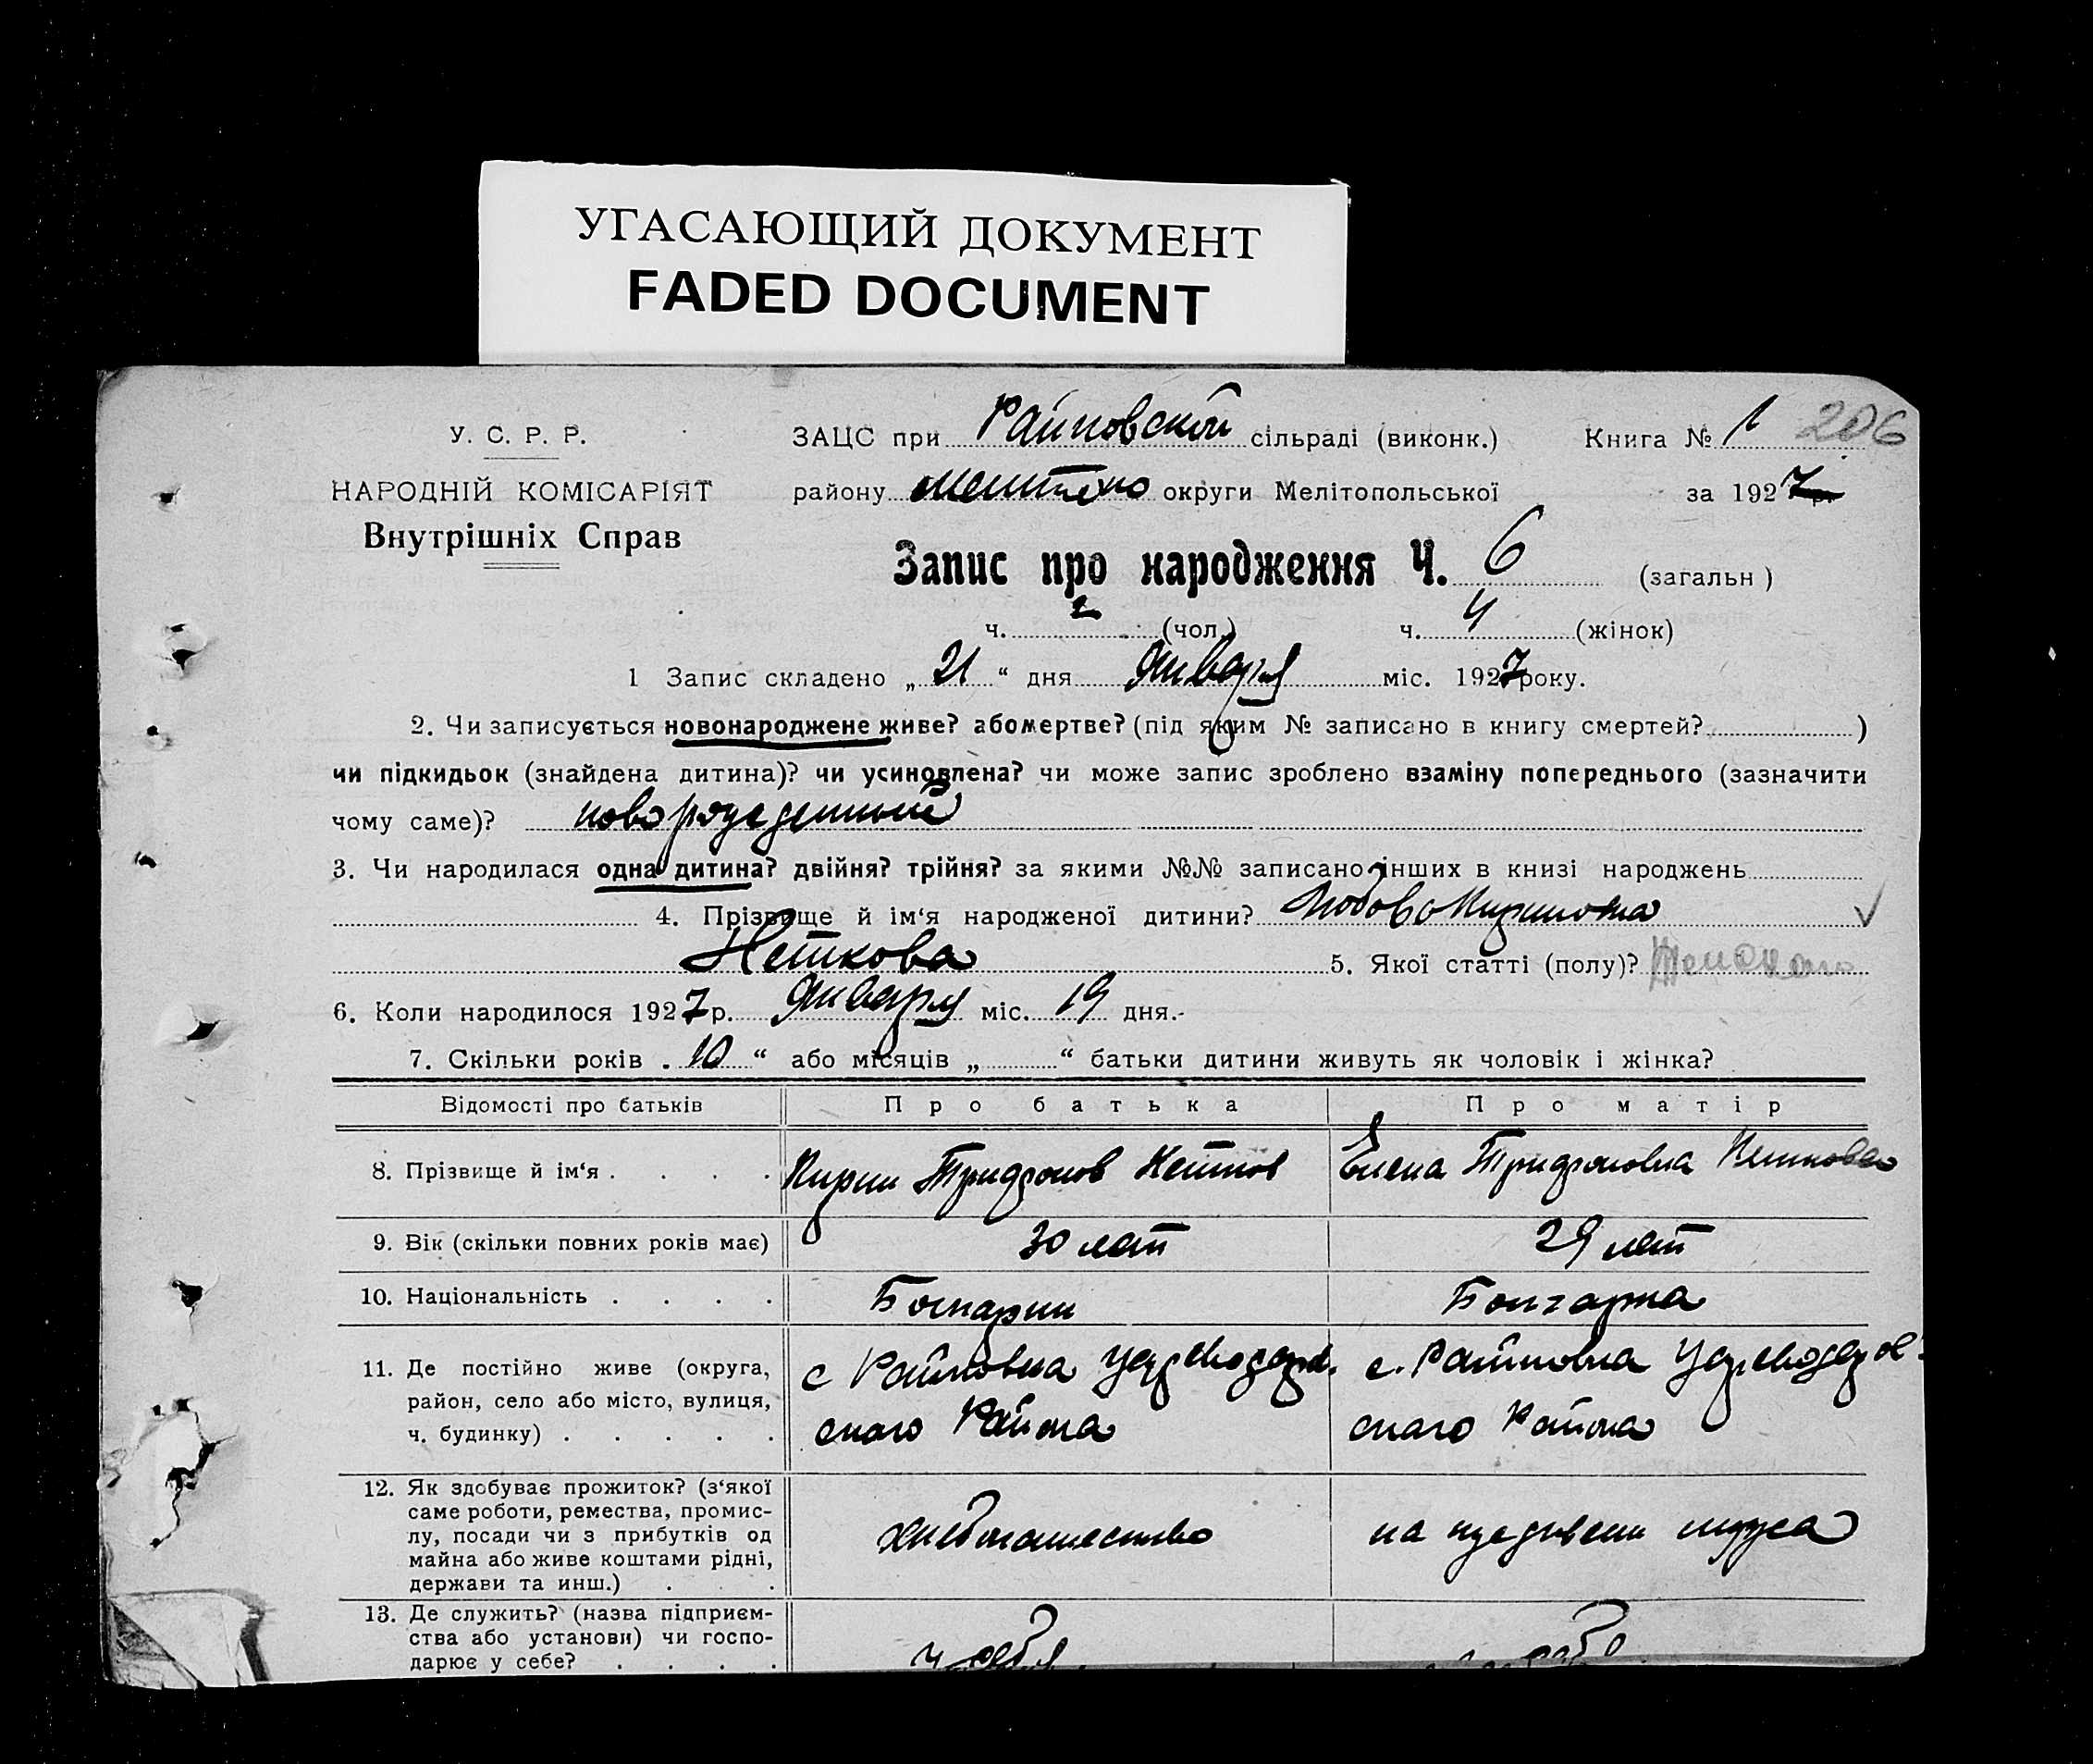 УГАСАЮЩИЙ ДОКУМЕНТ
FADED DOCUMENT
У. С. Р. Р.
НАРОДНІЙ КОМІСАРІЯТ
Внутрішніх Справ
ЗАЦС при Райновской сільраді (виконк.) Книга № 1 206
району округи Мелітопольської за 1927 р.
Запис про народження Ч. 6 (загальн )
ч. 2 (чол.) ч. 4 (жінок)
1 Запис складено „ 21 “ дня Января міс. 1927 року.
2. Чи записується новонароджене живе? або мертве? (під яким № записано в книгу смертей? )
чи підкидьок (знайдена дитина)? чи усиновлена? чи може запис зроблено взаміну попереднього (зазначити
чому саме)? новорожденный
3. Чи народилася одна дитина? двійня? трійня? за якими №№ записано інших в книзі народжень
4. Прізвище й ім‘я народженої дитини? Любов Кирилова
Нейкова 5. Якої статті (полу)? Женского
6. Коли народилося 1927 р. Января міс. 19 дня.-
7. Скільки років . 10 “ або місяців „ “ батьки дитини живуть як чоловік і жінка?
Відомості про батьків Про батька Про матір
8. Прізвище й ім‘я . . . . Кирил Трифонов Нейков Елена Трифоновна Нейкова
9. Вік (скільки повних років має) 30 лет 29 лет
10. Національність . . . . Болгарин Болгарка
11. Де постійно живе (округа,
район, село або місто, вулиця,
ч. будинку) . . . . .
с Райновка Цареводаров.
ского Района
с. Райновка Цареводаров
ского Района
12. Як здобуває прожиток? (з‘якої
саме роботи, ремества, промис-
лу, посади чи з прибутків од
майна або живе коштами рідні,
держави та инш.) . .
хлебопашество
на иждивени мужа
13. Де служить? (назва підприєм-
ства або установи) чи госпо-
дарює у себе? . . . .
у себя